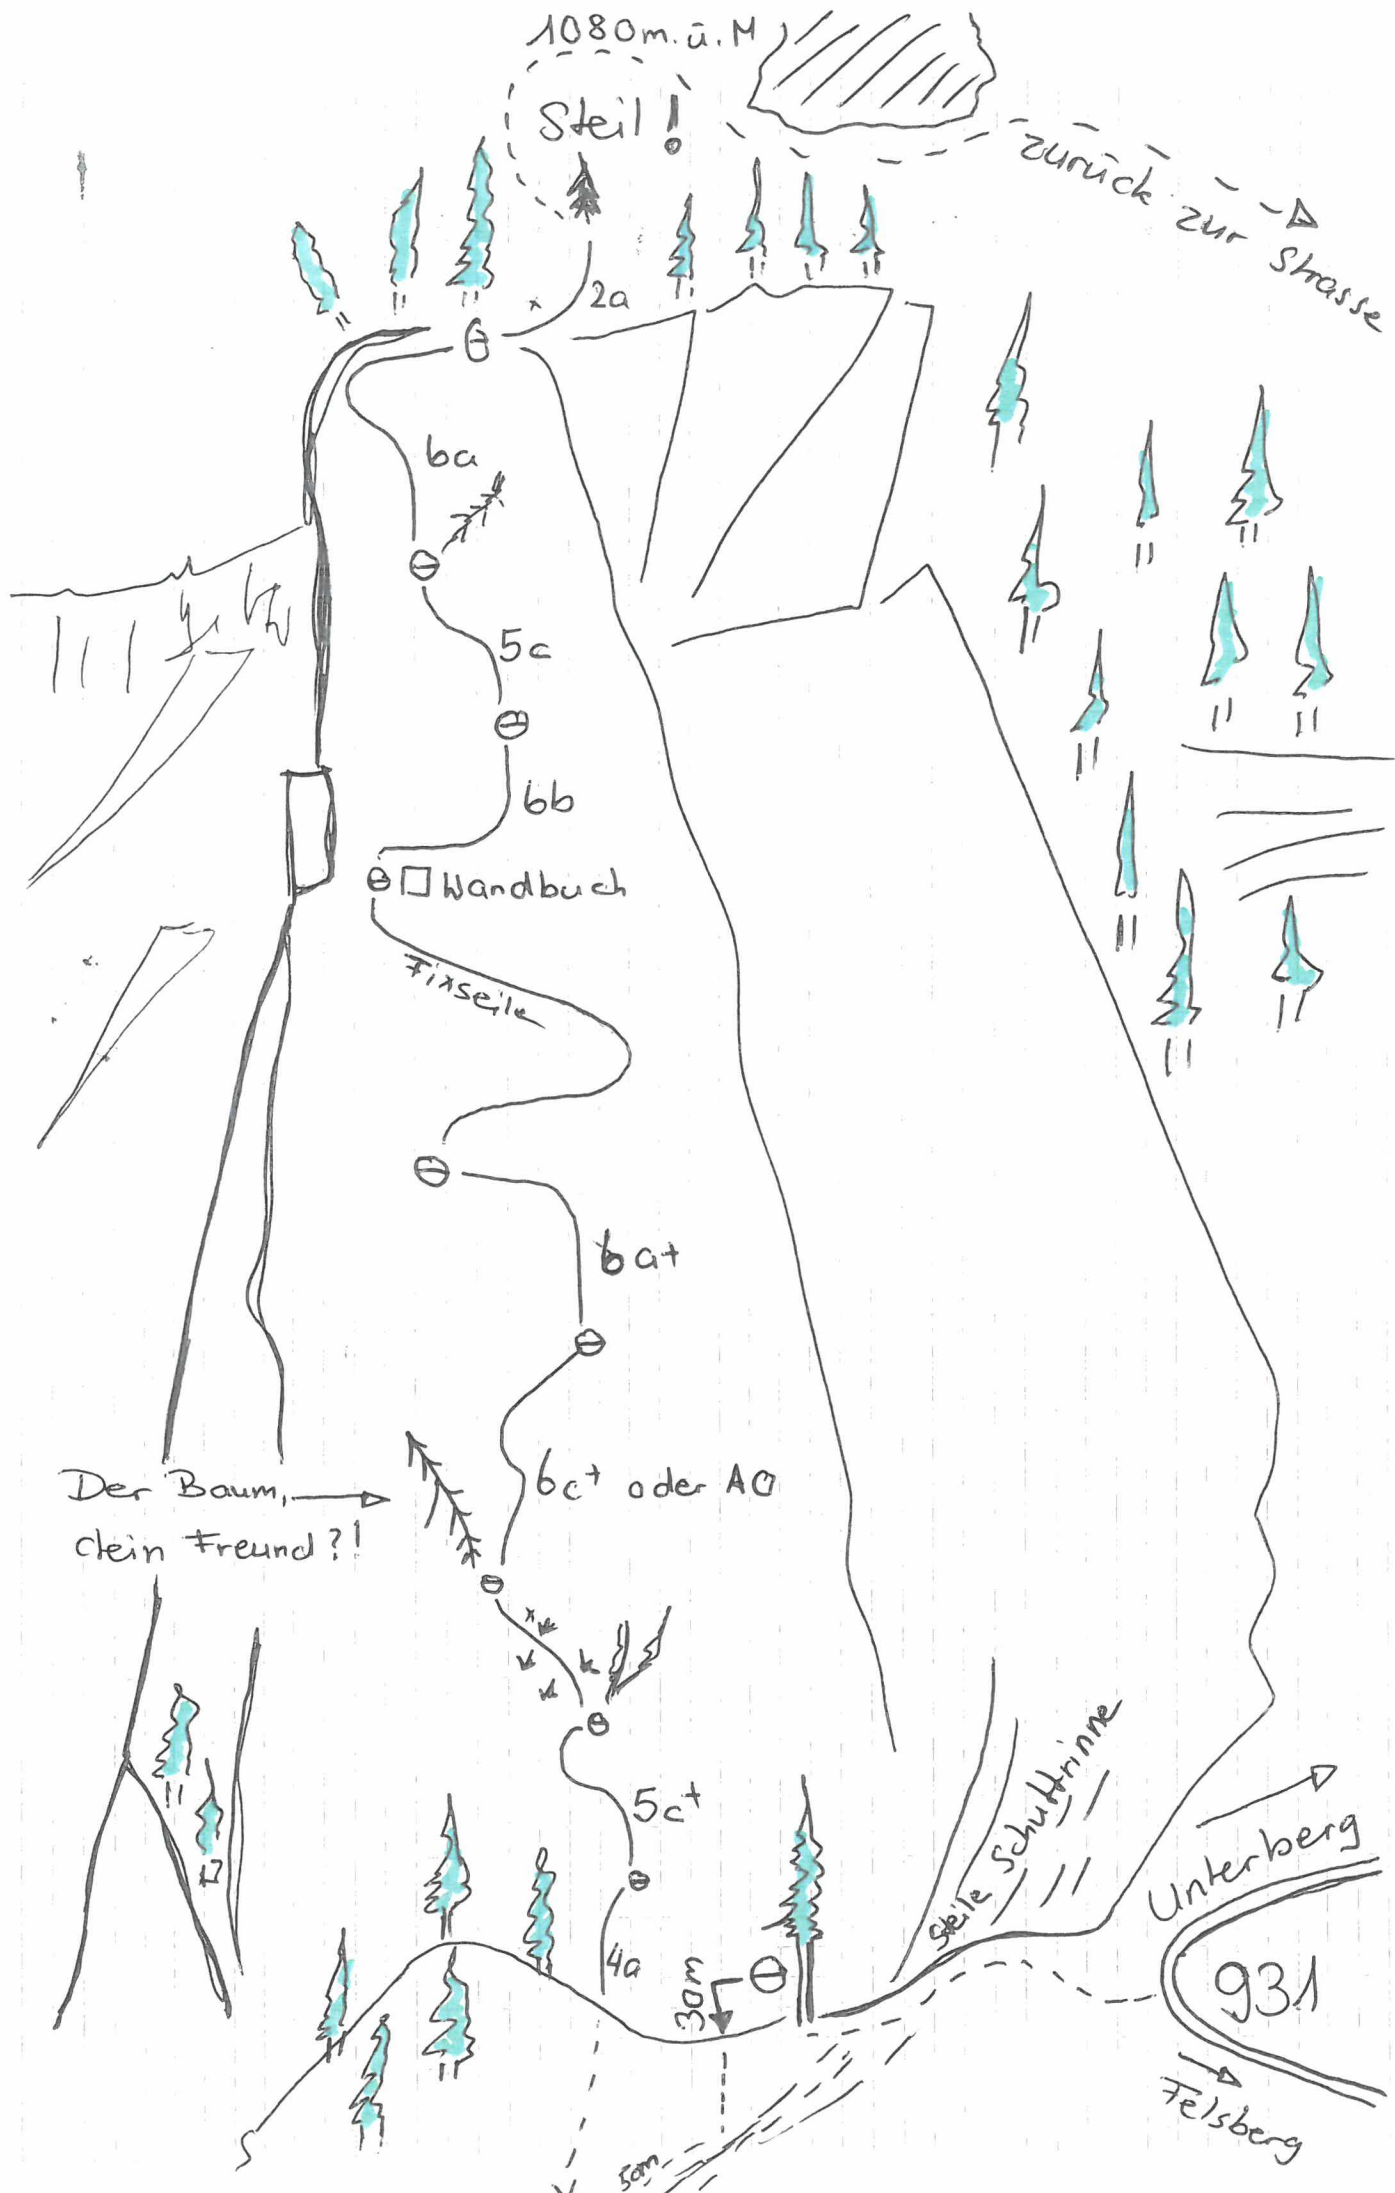 1080m.ü.M
Steil!
zurück zur Strasse
2a
6a
5c
6b
Wandbuch
Fixseile
6a+
6c+ oder A0
Der Baum,
dein Freund?!
5c+
Steile Schuttrinne
Unterberg
4a
30m
931
Felsberg
50m